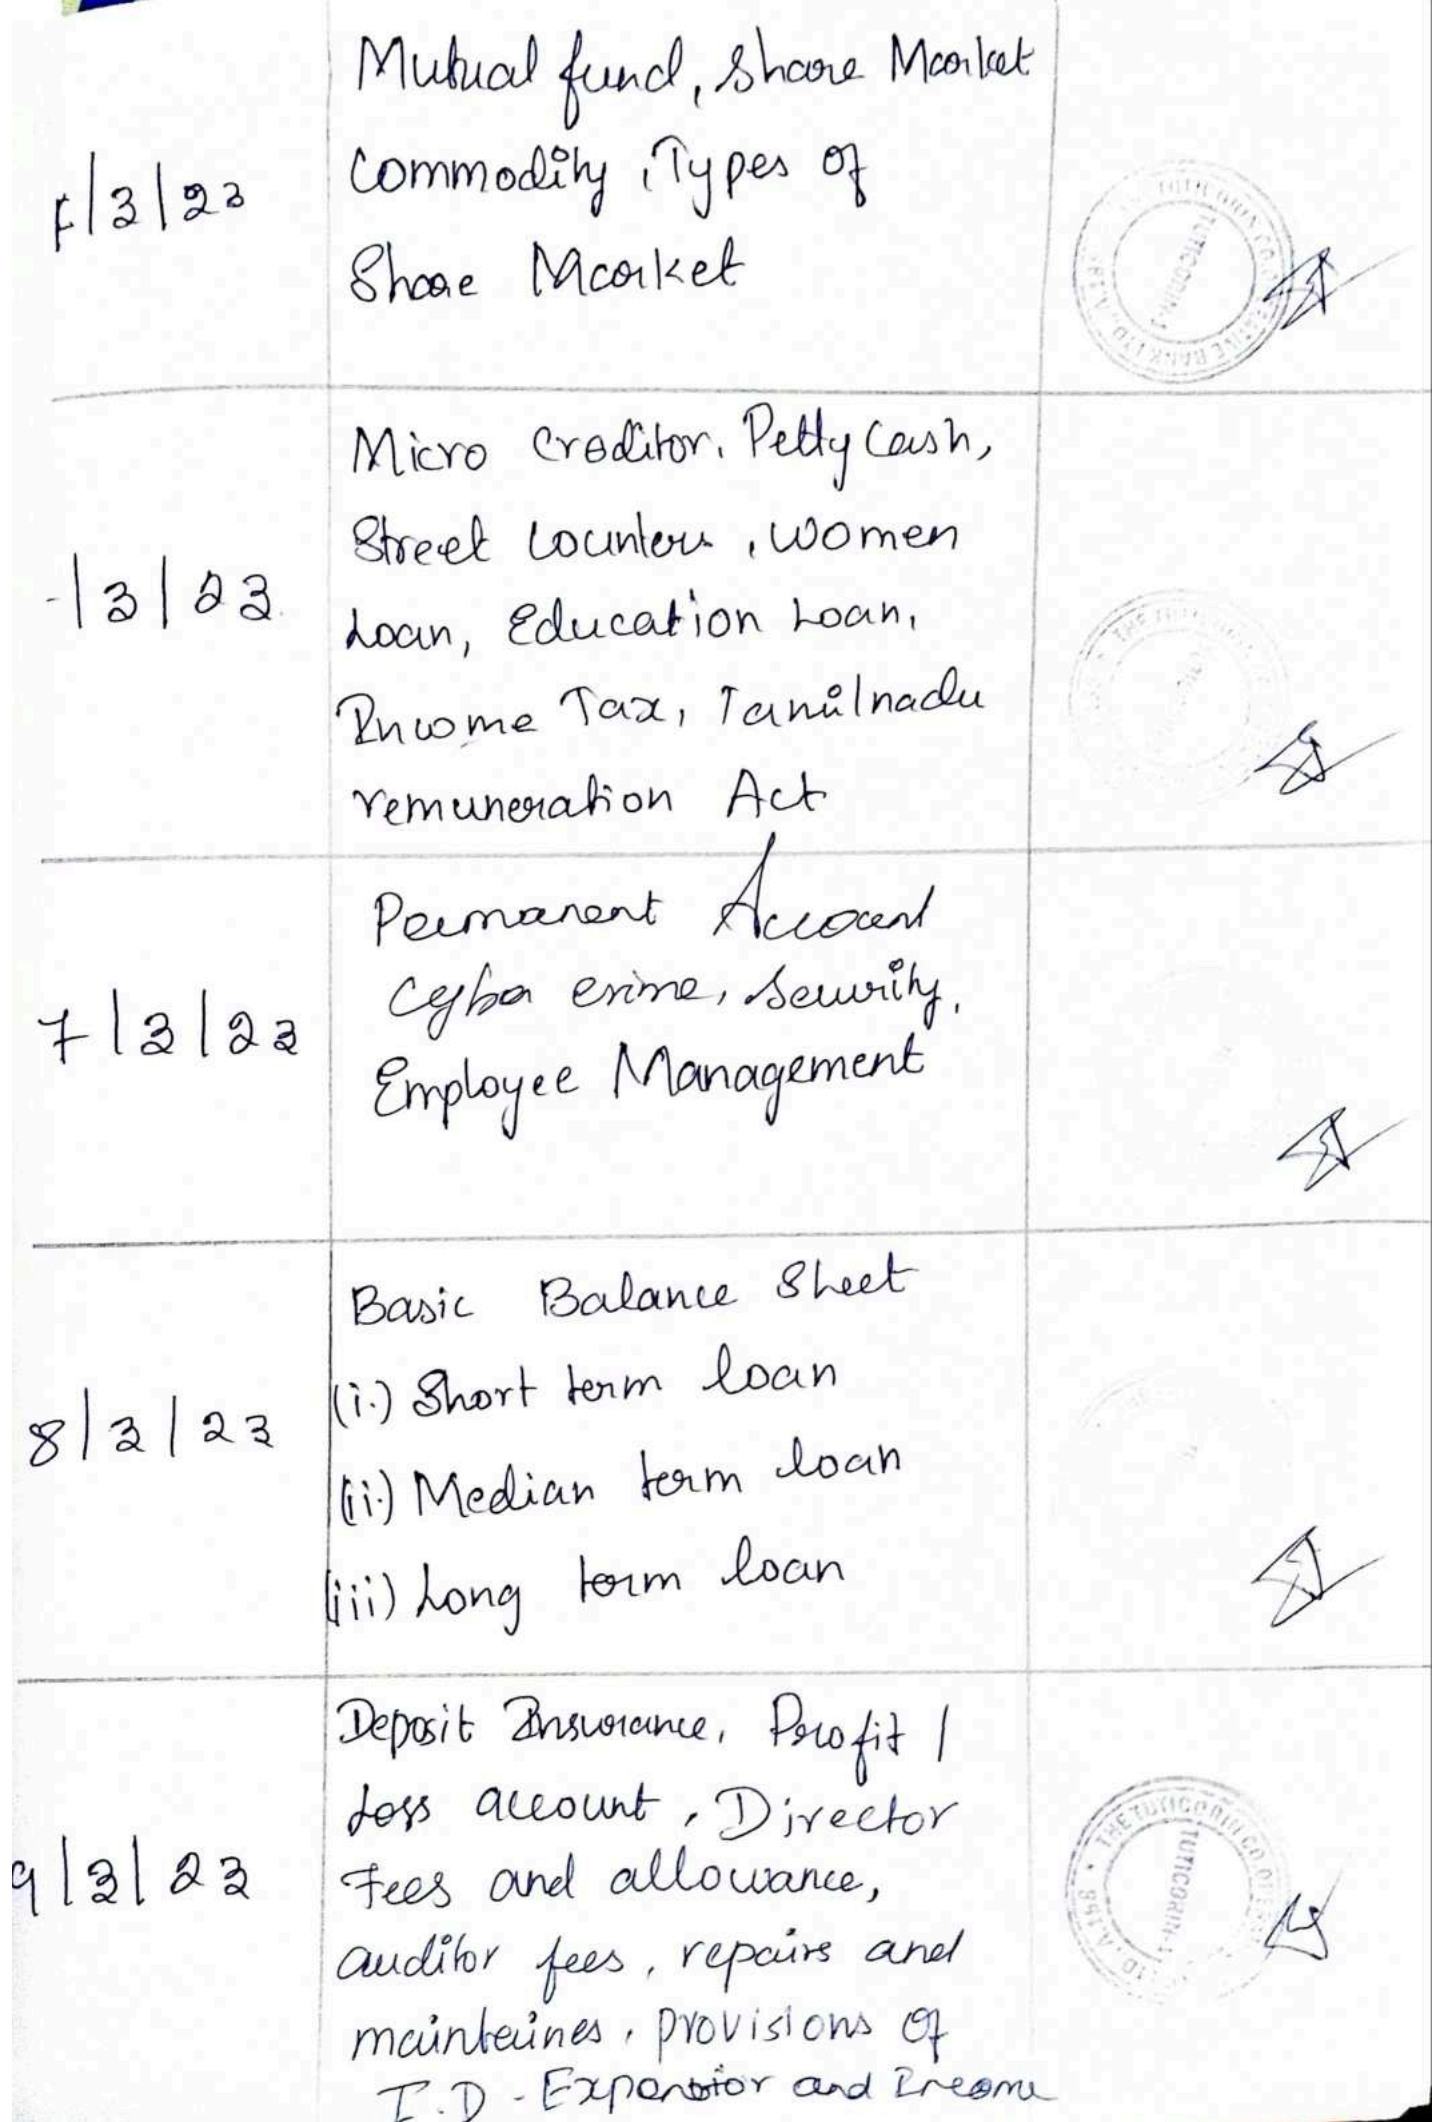 Mutual fund, Share Market
/3/23
Commodity, Types of
Share Market
TUTICORIN
Micro Creditor, Petty Cash,
Street Counters, Women
/3/23
Loan, Education Loan,
Income Tax, Tamilnadu
remuneration Act
Permanent Account
7/3/23
Cyber crime, Security,
Employee Management
Basic Balance Sheet
8/3/23
(i.) Short term loan
(ii.) Median term loan
(iii) Long term loan
Deposit Insurance, Profit /
Loss account, Director
9/3/23
Fees and allowance,
auditor fees, repairs and
maintaines, provisions of
I.D - Expansior and Income
THE TUTICORIN CO.OPER
TUTICORIN-1